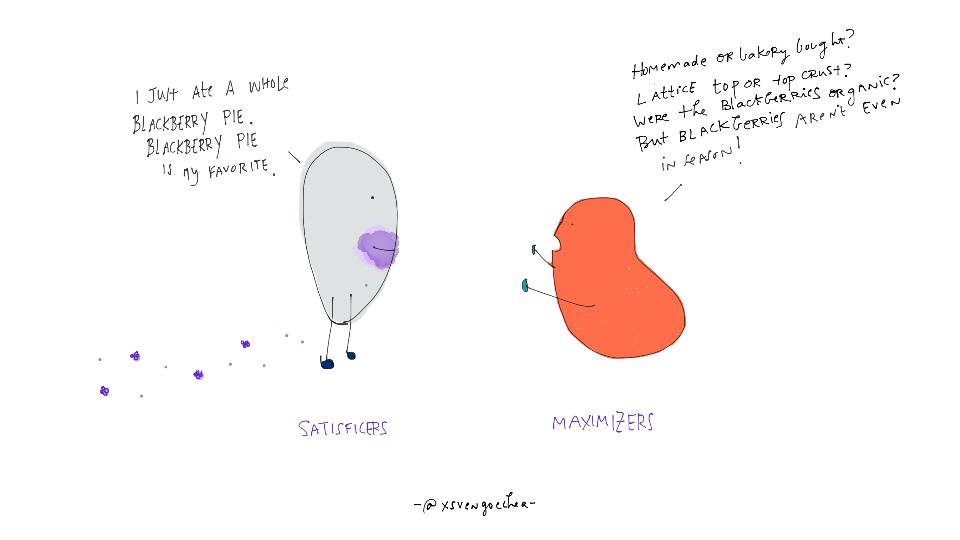 I JUST ATE A WHOLE
BLACKBERRY PIE.
BLACKBERRY PIE
IS MY FAVORITE.
HOMEMADE OR BAKERY BOUGHT?
LATTICE TOP OR TOP CRUST?
WERE THE BLACKBERRIES ORGANIC?
BUT BLACKBERRIES AREN'T EVEN
IN SEASON!
SATISFICERS
MAXIMIZERS
-@xsvengoechea-